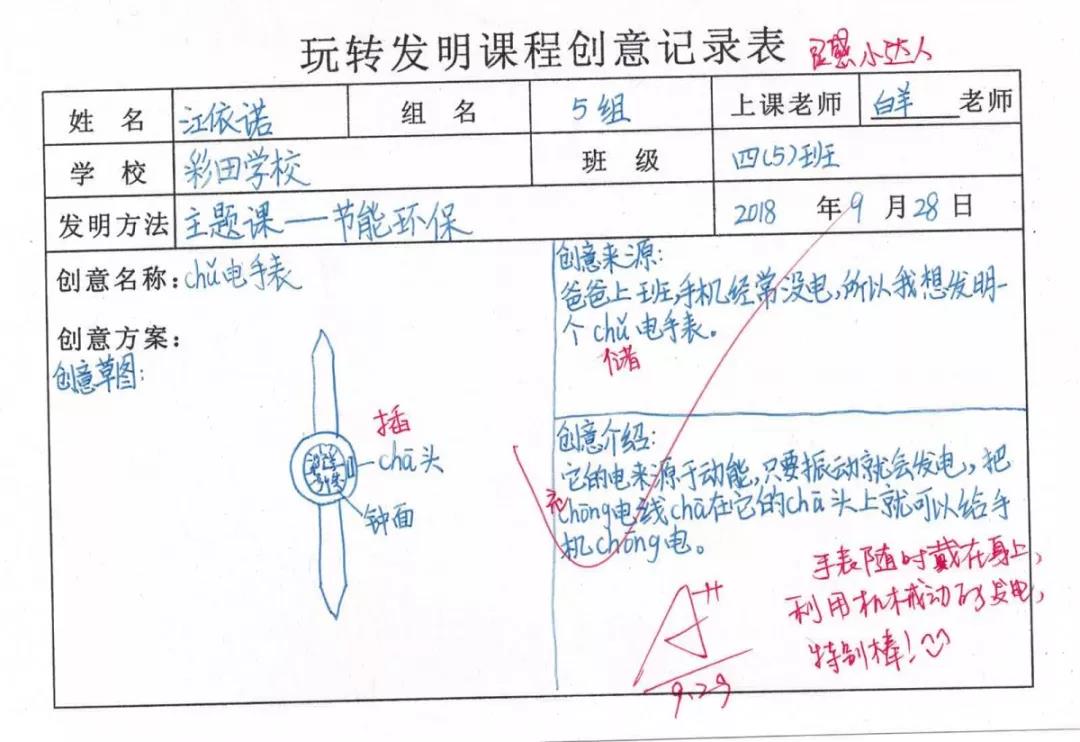 玩转发明课程创意记录表 灵感小达人
姓 名 江依诺 组 名 5组 上课老师 白羊 老师
学 校 彩田学校 班 级 四(5)班
发明方法 主题课——节能环保 2018 年 9 月 28 日
创意名称:chǔ电手表
创意方案:
创意草图:
插
chā头
钟面
创意来源:
爸爸上班,手机经常没电,所以我想发明一
个chǔ电手表。
储
创意介绍:
它的电来源于动能,只要振动就会发电,把
充
chōng电线chā在它的chā头上就可以给手
机chōng电。
手表随时戴在身上,
利用机械动能发电,
特别棒!
A++
9.29